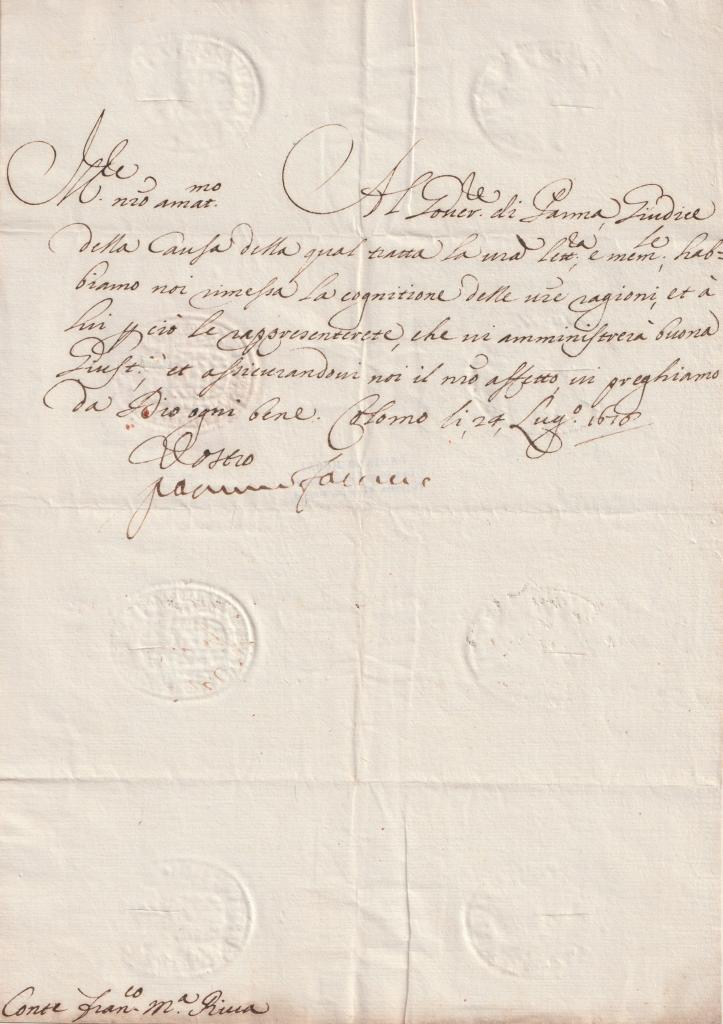 M.^(le) nr̃o amat.^(mo) Al Gover.^(re) di Parma, Giudice
della Causa della qual tratta la vrã lett.^(ra), e mem.^(le), hab=
biamo noi rimessa la cognitione delle vr̃e ragioni, et à
lui ꝑ ciò le rappresenterete, che vi amministrerà buona
Giust.^(a), et assicurandovi noi il nr̃o affetto, vi preghiamo
da Dio ogni bene. Colorno li, 24, Lug.^(o)
Vostro
Conte Fran.^(co) M.^(a) Riva